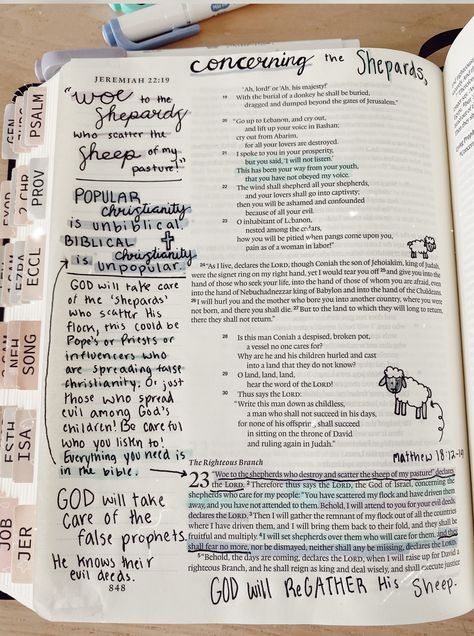 concerning the Shepards,
JEREMIAH 22:19
"Woe to the
Shepards
who scatter the
Sheep of my
pasture!"
POPULAR
christianity
is unbiblical.
BIBLICAL
christianity
is unpopular.
GOD will take care
of the 'shepards'
who scatter His
flock, this could be
Pope's or Priests or
influencers who
are spreading false
christianity. Or just
those who spread
evil among God's
children! Be careful
who you listen to!
Everything you need is
in the bible.
GOD will take
care of the
false prophets.
He knows their
evil deeds.
848
'Ah, lord!' or 'Ah, his majesty!'
19 With the burial of a donkey he shall be buried,
dragged and dumped beyond the gates of Jerusalem."
20 "Go up to Lebanon, and cry out,
and lift up your voice in Bashan;
cry out from Abarim,
for all your lovers are destroyed.
21 I spoke to you in your prosperity,
but you said, 'I will not listen.'
This has been your way from your youth,
that you have not obeyed my voice.
22 The wind shall shepherd all your shepherds,
and your lovers shall go into captivity;
then you will be ashamed and confounded
because of all your evil.
23 O inhabitant of Lebanon,
nested among the cedars,
how you will be pitied when pangs come upon you,
pain as of a woman in labor!"
24 "As I live, declares the LORD, though Coniah the son of Jehoiakim, king of Judah,
were the signet ring on my right hand, yet I would tear you off 25 and give you into the
hand of those who seek your life, into the hand of those of whom you are afraid, even
into the hand of Nebuchadnezzar king of Babylon and into the hand of the Chaldeans.
26 I will hurl you and the mother who bore you into another country, where you were
not born, and there you shall die. 27 But to the land to which they will long to return,
there they shall not return."
28 Is this man Coniah a despised, broken pot,
a vessel no one cares for?
Why are he and his children hurled and cast
into a land that they do not know?
29 O land, land, land,
hear the word of the LORD!
30 Thus says the LORD:
"Write this man down as childless,
a man who shall not succeed in his days,
for none of his offspring shall succeed
in sitting on the throne of David
and ruling again in Judah."
matthew 18:12-14
The Righteous Branch
23 "Woe to the shepherds who destroy and scatter the sheep of my pasture!" declares
the LORD. 2 Therefore thus says the LORD, the God of Israel, concerning the
shepherds who care for my people: "You have scattered my flock and have driven them
away, and you have not attended to them. Behold, I will attend to you for your evil deeds,
declares the LORD. 3 Then I will gather the remnant of my flock out of all the countries
where I have driven them, and I will bring them back to their fold, and they shall be
fruitful and multiply. 4 I will set shepherds over them who will care for them, and they
shall fear no more, nor be dismayed, neither shall any be missing, declares the LORD.
5 "Behold, the days are coming, declares the LORD, when I will raise up for David a
righteous Branch, and he shall reign as king and deal wisely, and shall execute justice
GOD will ReGATHER His Sheep.
PSALM
PROV
ECCL
SONG
ISA
JER
GEN
EXOD
2 CHR
EZRA
NEH
ESTH
JOB